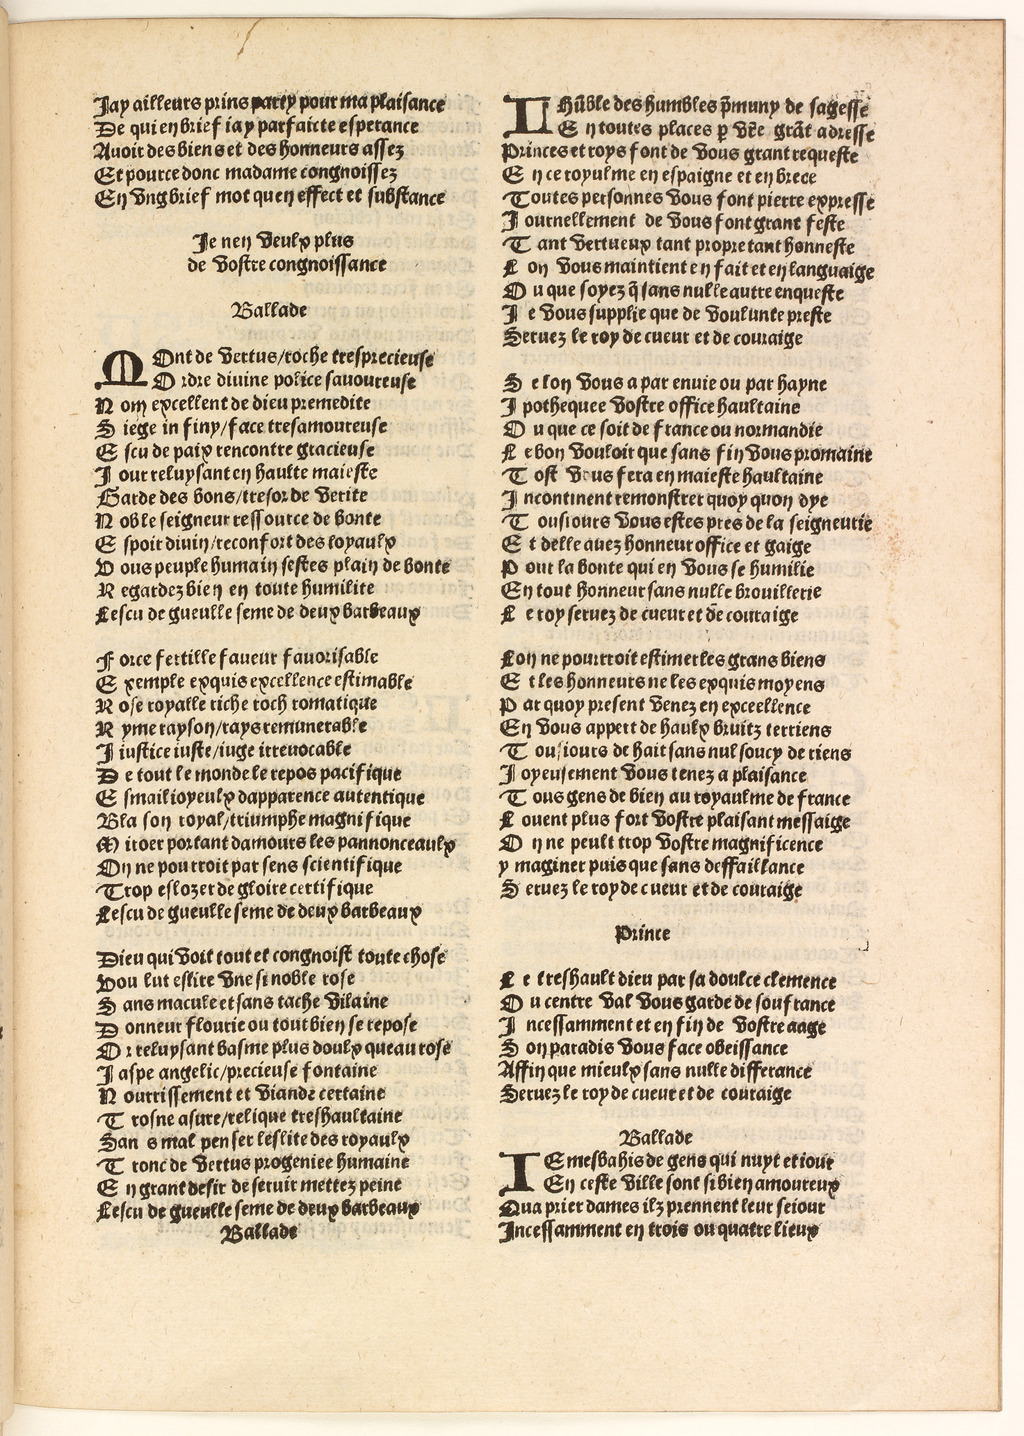 Jay ailleurs prins party pour ma plaisance
De qui en brief iay parfaicte esperance
Auoir des biens et des honneurs assez
Et pource donc madame congnoissez
En vng brief mot quen effect et substance
Je nen veulx plus
de vostre congnoissance
Ballade
MOnt de vertus/roche tresprecieuse
Ordre diuine police sauoureuse
Nom excellent de dieu premedite
Siege infiny/face tresamoureuse
Escu de paix rencontre gracieuse
Jour reluysant en haulte maieste
Garde des bons/tresor de verite
Noble seigneur ressource de bonte
Espoir diuin/reconfort des loyaulx
Vous peuple humain sestes plain de bonte
Regardez bien en toute humilite
Lescu de gueulle seme de deux barbeaux
Force fertille faueur fauorisable
Exemple exquis excellence estimable
Rose royalle riche roch romatique
Ryme rayson/rays remunerable
Jiustice iuste/iuge irreuocable
De tout le monde le repos pacifique
Esmail ioyeulx dapparence autentique
Blason royal/triumphe magnifique
Miroer portant damours les pannonceaulx
On ne pourroit par sens scientifique
Trop eslozer de gloire certifique
Lescu de gueulle seme de deux barbeaux
Dieu qui voit tout et congnoist toute chose
Voulut eslire vne si noble rose
Sans macule et sans tache vilaine
Donneur flourie ou tout bien se repose
Or reluysant basme plus doulx queau rose
Jaspe angelic/precieuse fontaine
Nourrissement et viande certaine
Trosne asure/relique treshaultaine
Sans mal penser leslite des royaulx
Tronc de vertus progeniee humaine
En grant desir de seruir mettez peine
Lescu de gueulle seme de deux barbeaux
Ballade
LHũble des humbles p̃muny de sagesse
En toutes places p vr̃e grãt adresse
Princes et roys font de vous grant requeste
En ce royulme en espaigne et en brece
Toutes personnes vous font pierre expresse
Journellement de vous font grant feste
Tant vertueux tant propre tant honneste
Lon vous maintient en fait et en languaige
Ou que soyez q̃ sans nulle autre enqueste
Je vous supplie que de voulunte preste
Seruez le roy de cueur et de couraige
Se lon vous a par enuie ou par hayne
Jpothequee vostre office haultaine
Ou que ce soit de france ou normandie
Le bon vouloir que sans fin vous promaine
Tost vous fera en maieste haultaine
Jncontinent remonstrer quoy quon dye
Tousiours vous estes pres de la seigneurie
Et delle auez honneur office et gaige
Pour la bonte qui en vous se humilie
En tout honneur sans nulle brouillerie
Le roy seruez de cueur et de couraige
Lon ne pourroit estimer les grans biens
Et les honneurs ne les exquis moyens
Par quoy present venez en exceellence
En vous appert de haulx bruitz terriens
Tousiours de hait sans nul soucy de riens
Joyeusement vous tenez a plaisance
Tous gens de bien au royaulme de france
Louent plus fort vostre plaisant messaige
On ne peult trop vostre magnificence
ymaginer puis que sans deffaillance
Seruez le roy de cueur et de couraige
Prince
Le treshault dieu par sa doulce clemence
Ou centre val vous garde de soufrance
Jncessamment et en fin de vostre aage
Son paradis vous face obeissance
Affin que mieulx sans nulle differance
Seruez le roy de cueur et de couraige
Ballade
IEmesbahis de gens qui nuyt et iour
En ceste ville sont si bien amoureux
Qua prier dames ilz prennent leur seiour
Jncessamment en trois ou quatre lieux